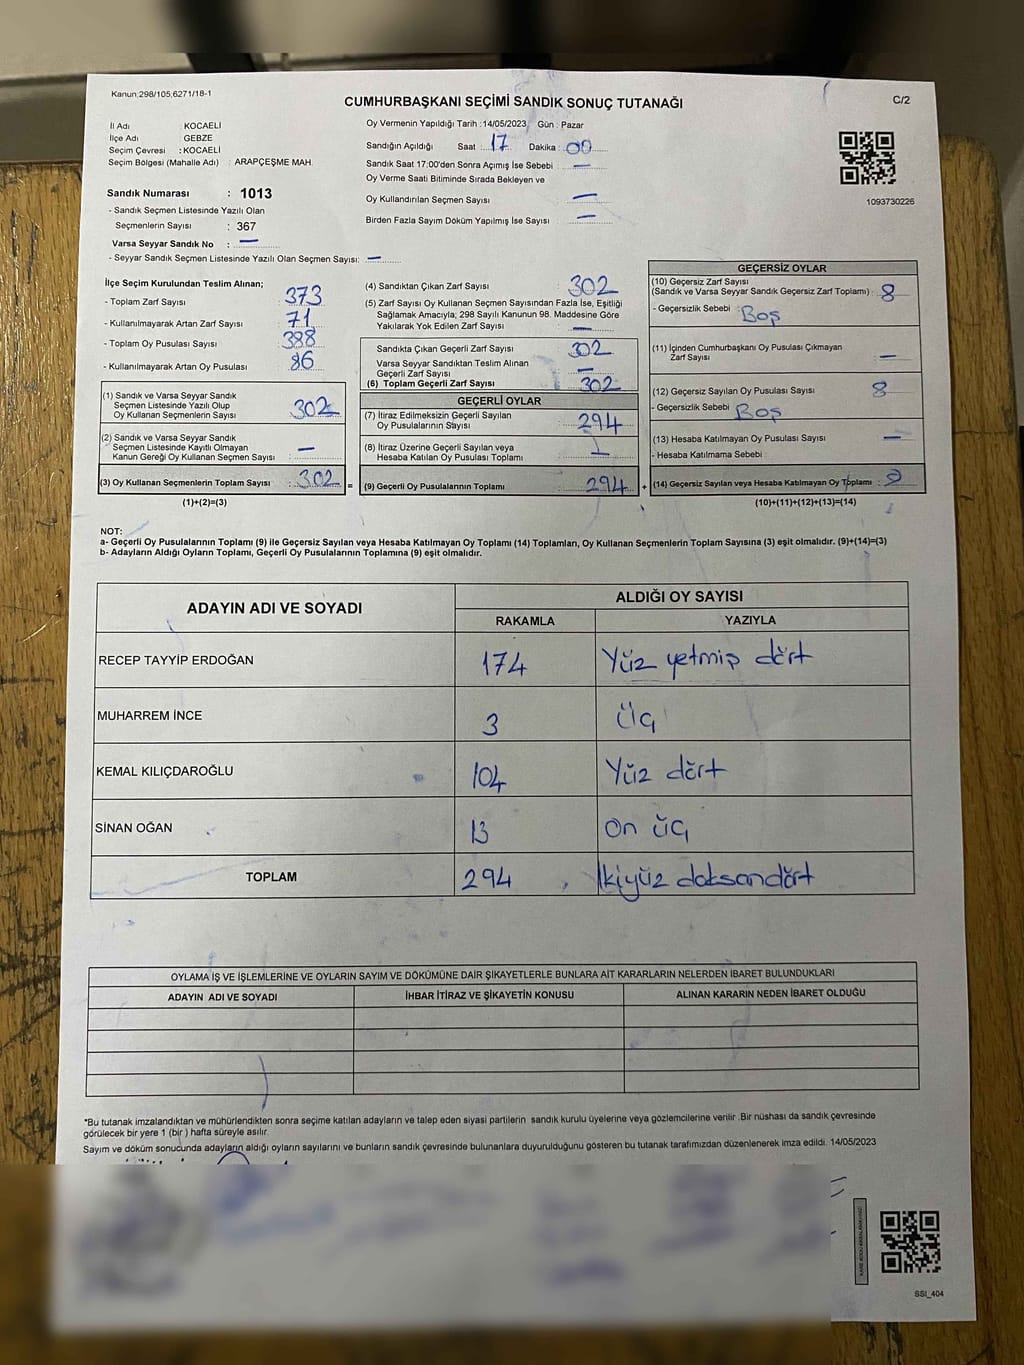 Kanun;298/105;6271/18-1
CUMHURBAŞKANI SEÇİMİ SANDIK SONUÇ TUTANAĞI
C/2
İl Adı : KOCAELİ
İlçe Adı : GEBZE
Seçim Çevresi : KOCAELİ
Seçim Bölgesi (Mahalle Adı) : ARAPÇEŞME MAH.
Sandık Numarası : 1013
- Sandık Seçmen Listesinde Yazılı Olan
Seçmenlerin Sayısı : 367
Varsa Seyyar Sandık No : —
- Seyyar Sandık Seçmen Listesinde Yazılı Olan Seçmen Sayısı: —
Oy Vermenin Yapıldığı Tarih :14/05/2023 Gün : Pazar
Sandığın Açıldığı Saat : 17 Dakika : 00
Sandık Saat 17:00'den Sonra Açımış İse Sebebi : —
Oy Verme Saati Bitiminde Sırada Bekleyen ve
Oy Kullandırılan Seçmen Sayısı : —
Birden Fazla Sayım Döküm Yapılmış İse Sayısı : —
1093730226
İlçe Seçim Kurulundan Teslim Alınan;
- Toplam Zarf Sayısı : 373
- Kullanılmayarak Artan Zarf Sayısı : 71
- Toplam Oy Pusulası Sayısı : 388
- Kullanılmayarak Artan Oy Pusulası : 86
(1) Sandık ve Varsa Seyyar Sandık
Seçmen Listesinde Yazılı Olup
Oy Kullanan Seçmenlerin Sayısı : 302
(2) Sandık ve Varsa Seyyar Sandık
Seçmen Listesinde Kayıtlı Olmayan
Kanun Gereği Oy Kullanan Seçmen Sayısı : —
(3) Oy Kullanan Seçmenlerin Toplam Sayısı : 302 =
(1)+(2)=(3)
(4) Sandıktan Çıkan Zarf Sayısı : 302
(5) Zarf Sayısı Oy Kullanan Seçmen Sayısından Fazla İse, Eşitliği
Sağlamak Amacıyla; 298 Sayılı Kanunun 98. Maddesine Göre
Yakılarak Yok Edilen Zarf Sayısı : —
Sandıkta Çıkan Geçerli Zarf Sayısı : 302
Varsa Seyyar Sandıktan Teslim Alınan
Geçerli Zarf Sayısı : —
(6) Toplam Geçerli Zarf Sayısı : 302
GEÇERLİ OYLAR
(7) İtiraz Edilmeksizin Geçerli Sayılan
Oy Pusulalarının Sayısı : 294
(8) İtiraz Üzerine Geçerli Sayılan veya
Hesaba Katılan Oy Pusulası Toplamı :
(9) Geçerli Oy Pusulalarının Toplamı : 294 +
GEÇERSİZ OYLAR
(10) Geçersiz Zarf Sayısı
(Sandık ve Varsa Seyyar Sandık Geçersiz Zarf Toplamı) : 8
- Geçersizlik Sebebi : Boş
(11) İçinden Cumhurbaşkanı Oy Pusulası Çıkmayan
Zarf Sayısı : —
(12) Geçersiz Sayılan Oy Pusulası Sayısı : 8
- Geçersizlik Sebebi : Boş
(13) Hesaba Katılmayan Oy Pusulası Sayısı : —
- Hesaba Katılmama Sebebi :
(14) Geçersiz Sayılan veya Hesaba Katılmayan Oy Toplamı :
(10)+(11)+(12)+(13)=(14)
NOT:
a- Geçerli Oy Pusulalarının Toplamı (9) ile Geçersiz Sayılan veya Hesaba Katılmayan Oy Toplamı (14) Toplamları, Oy Kullanan Seçmenlerin Toplam Sayısına (3) eşit olmalıdır. (9)+(14)=(3)
b- Adayların Aldığı Oyların Toplamı, Geçerli Oy Pusulalarının Toplamına (9) eşit olmalıdır.
ADAYIN ADI VE SOYADI ALDIĞI OY SAYISI
RAKAMLA YAZIYLA
RECEP TAYYİP ERDOĞAN 174 Yüz yetmiş dört
MUHARREM İNCE 3 Üç
KEMAL KILIÇDAROĞLU 104 Yüz dört
SİNAN OĞAN 13 On üç
TOPLAM 294 İkiyüz doksandört
OYLAMA İŞ VE İŞLEMLERİNE VE OYLARIN SAYIM VE DÖKÜMÜNE DAİR ŞİKAYETLERLE BUNLARA AİT KARARLARIN NELERDEN İBARET BULUNDUKLARI
ADAYIN ADI VE SOYADI İHBAR İTİRAZ VE ŞİKAYETİN KONUSU ALINAN KARARIN NEDEN İBARET OLDUĞU
*Bu tutanak imzalandıktan ve mühürlendikten sonra seçime katılan adayların ve talep eden siyasi partilerin sandık kurulu üyelerine veya gözlemcilerine verilir .Bir nüshası da sandık çevresinde
görülecek bir yere 1 (bir ) hafta süreyle asılır.
Sayım ve döküm sonucunda adayların aldığı oyların sayılarını ve bunların sandık çevresinde bulunanlara duyurulduğunu gösteren bu tutanak tarafımızdan düzenlenerek imza edildi. 14/05/2023
SSI_404